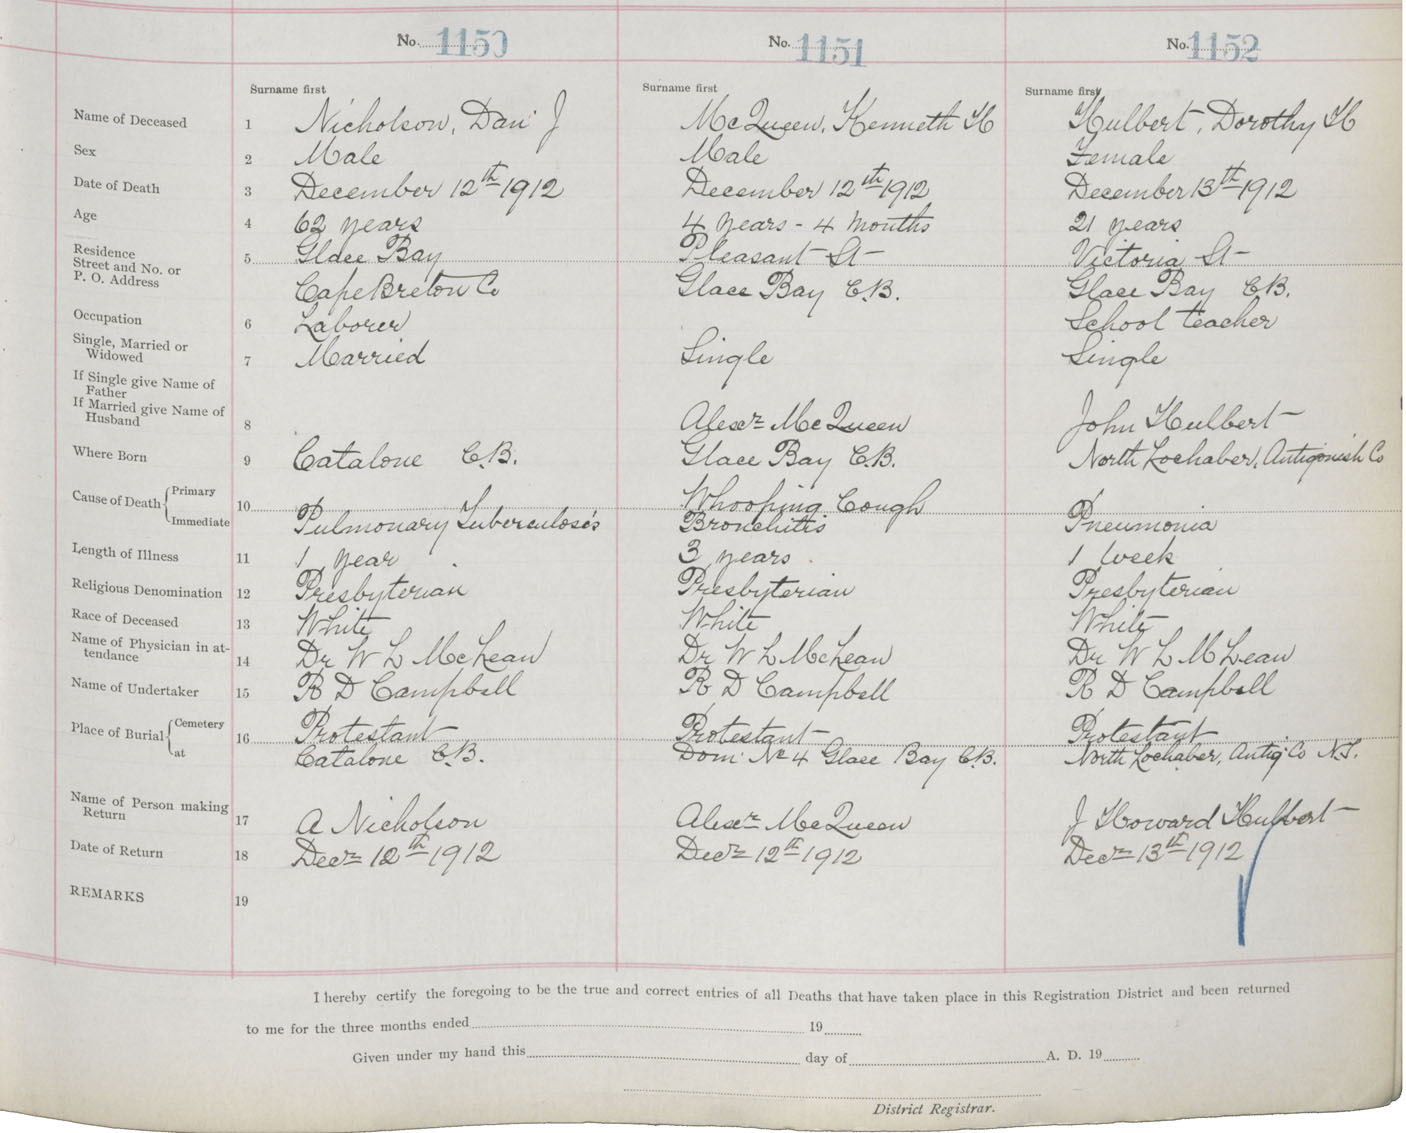 No. 1150 No. 1151 No. 1152
Surname first Surname first Surname first
Name of Deceased 1 Nicholson, Dan J McQueen, Kenneth H Hulbert, Dorothy H
Sex 2 Male Male Female
Date of Death 3 December 12th 1912 December 12th 1912 December 13th 1912
Age 4 62 years 4 years - 4 months 21 years
Residence
Street and No. or 5 Glace Bay Pleasant St Victoria St
P. O. Address Cape Breton Co Glace Bay C.B. Glace Bay C.B.
Occupation 6 Laborer School teacher
Single, Married or
Widowed 7 Married Single Single
If Single give Name of
Father
If Married give Name of
Husband 8 Alexr McQueen John Hulbert
Where Born 9 Catalone C.B. Glace Bay C.B. North Lochaber, Antigonish Co
Cause of Death Primary 10 Whooping Cough
Immediate Pulmonary Tuberculosis Bronchitis Pneumonia
Length of Illness 11 1 year 3 years 1 week
Religious Denomination 12 Presbyterian Presbyterian Presbyterian
Race of Deceased 13 White White White
Name of Physician in at-
tendance 14 Dr W L McLean Dr W L McLean Dr W L McLean
Name of Undertaker 15 R D Campbell R D Campbell R D Campbell
Place of Burial Cemetery 16 Protestant Protestant Protestant
at Catalone C.B. Dom. No 4 Glace Bay C.B. North Lochaber, Antig Co N.S.
Name of Person making
Return 17 A Nicholson Alexr McQueen J Howard Hulbert
Date of Return 18 Decr 12th 1912 Decr 12th 1912 Decr 13th 1912
REMARKS 19
I hereby certify the foregoing to be the true and correct entries of all Deaths that have taken place in this Registration District and been returned
to me for the three months ended 19
Given under my hand this day of A. D. 19
District Registrar.